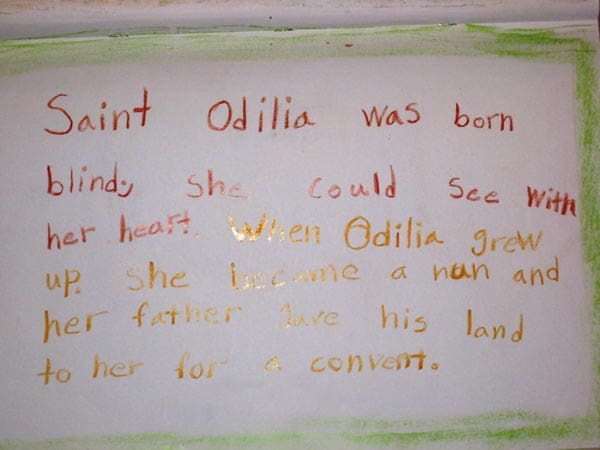 Saint Odilia was born
blind; she could see with
her heart. When Odilia grew
up. she became a nun and
her father gave his land
to her for a convent.